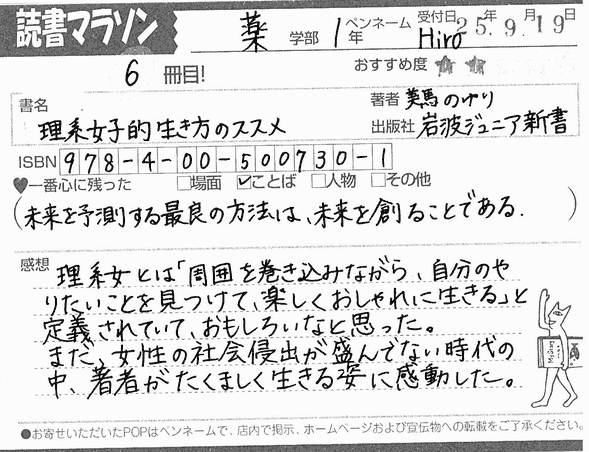 読書マラソン
薬 学部 1年
ペンネーム Hiro
受付日 25年.9.月19日
6 冊目!
おすすめ度 ★★
書名
理系女子的生き方のススメ
著者 美馬のゆり
出版社 岩波ジュニア新書
ISBN 978-4-00-500730-1
♥一番心に残った □場面 ☑ことば □人物 □その他
(未来を予測する最良の方法は、未来を創ることである.)
感想
理系女とは「周囲を巻き込みながら、自分のや
りたいことを見つけて、楽しくおしゃれに生きる」と
定義されていて、おもしろいなと思った。
まだ、女性の社会侵出が盛んでない時代の
中、著者がたくましく生きる姿に感動した。
●お寄せいただいたPOPはペンネームで、店内で掲示、ホームページおよび宣伝物への転載をご了承ください。